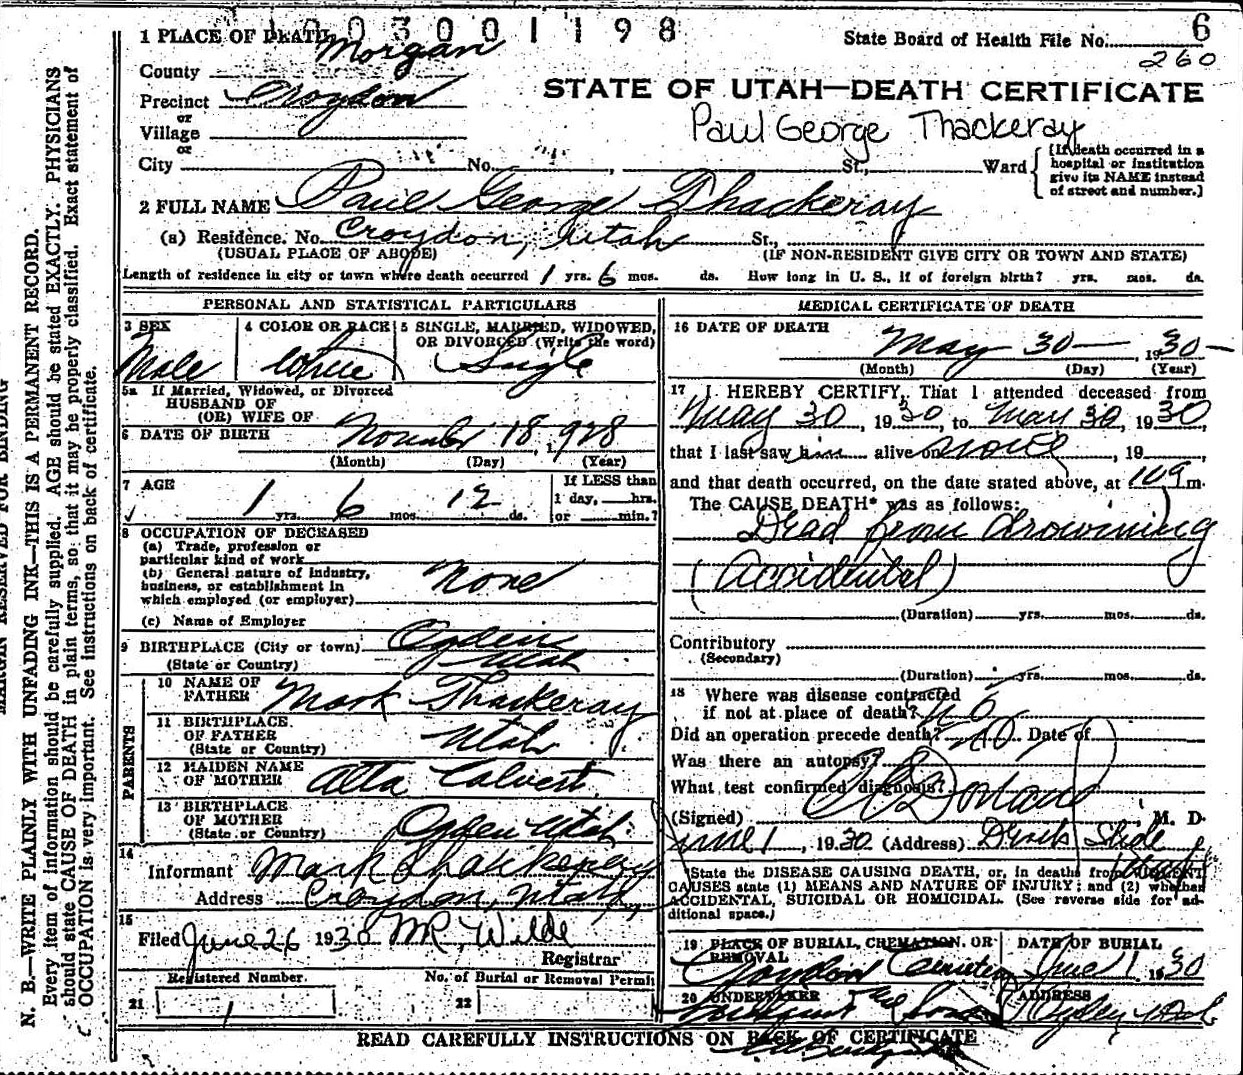 1003001198
1 PLACE OF DEATH
State Board of Health File No. 6
260
County Morgan
STATE OF UTAH—DEATH CERTIFICATE
Precinct Croydon
or
Village
Paul George Thackeray
or
City No. St., Ward
[If death occurred in a hospital or institution give its NAME instead of street and number.]
2 FULL NAME Paul George Thackeray
(a) Residence. No. Croydon, Utah St.,
(USUAL PLACE OF ABODE) (IF NON-RESIDENT GIVE CITY OR TOWN AND STATE)
Length of residence in city or town where death occurred 1 yrs. 6 mos. ds. How long in U. S., if of foreign birth? yrs. mos. ds.
PERSONAL AND STATISTICAL PARTICULARS
3 SEX Male
4 COLOR OR RACE White
5 SINGLE, MARRIED, WIDOWED, OR DIVORCED (Write the word) Single
5a If Married, Widowed, or Divorced
HUSBAND OF
(OR) WIFE OF
6 DATE OF BIRTH November 18, 1928
(Month) (Day) (Year)
7 AGE 1 yrs. 6 mos. 12 ds.
If LESS than
1 day, hrs.
or min.?
8 OCCUPATION OF DECEASED
(a) Trade, profession or
particular kind of work
(b) General nature of Industry,
business, or establishment in
which employed (or employer) None
(c) Name of Employer
9 BIRTHPLACE (City or town) Ogden
(State or Country) Utah
PARENTS
10 NAME OF
FATHER Mark Thackeray
11 BIRTHPLACE
OF FATHER
(State or Country) Utah
12 MAIDEN NAME
OF MOTHER Alta Calvert
13 BIRTHPLACE
OF MOTHER
(State or Country) Ogden Utah
14
Informant Mark Thackeray
Address Croydon, Utah
15
Filed June 26 1930 MR. Wilde
Registrar
Registered Number. No. of Burial or Removal Permit
21 1 22
MEDICAL CERTIFICATE OF DEATH
16 DATE OF DEATH May 30— , 1930—
(Month) (Day) (Year)
17 I HEREBY CERTIFY, That I attended deceased from
May 30, 1930, to May 30, 1930,
that I last saw him alive on , 19 ,
and that death occurred, on the date stated above, at m.
The CAUSE DEATH* was as follows:
Dead from drowning
(Accidental)
(Duration) yrs. mos. ds.
Contributory
(Secondary)
(Duration) yrs. mos. ds.
18 Where was disease contracted
if not at place of death? no
Did an operation precede death? no Date of
Was there an autopsy?
What test confirmed diagnosis?
(Signed) M. D.
June 1, 1930 (Address) Devils Slide
Utah
*State the DISEASE CAUSING DEATH, or, in deaths from VIOLENT
CAUSES state (1) MEANS AND NATURE OF INJURY; and (2) whether
ACCIDENTAL, SUICIDAL OR HOMICIDAL. (See reverse side for ad-
ditional space.)
19 PLACE OF BURIAL, CREMATION, OR REMOVAL Croydon Cemetery
DATE OF BURIAL June 1 1930
20 UNDERTAKER & Sons
ADDRESS Ogden Utah
READ CAREFULLY INSTRUCTIONS ON BACK OF CERTIFICATE
MARGIN RESERVED FOR BINDING
N. B.—WRITE PLAINLY WITH UNFADING INK—THIS IS A PERMANENT RECORD.
Every item of information should be carefully supplied. AGE should be stated EXACTLY. PHYSICIANS
should state CAUSE OF DEATH in plain terms, so that it may be properly classified. Exact statement of
OCCUPATION is very important. See instructions on back of certificate.